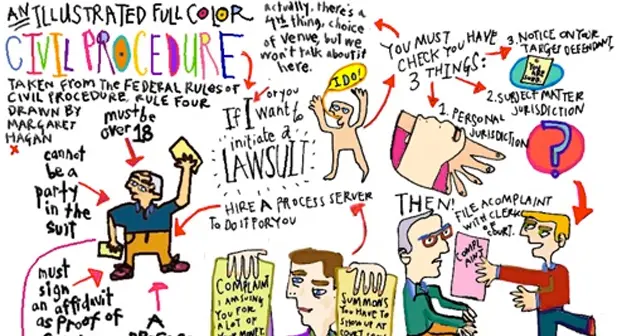 AN ILLUSTRATED FULL COLOR
CIVIL PROCEDURE
TAKEN FROM THE FEDERAL RULES OF
CIVIL PROCEDURE, RULE FOUR
DRAWN BY
MARGARET
HAGAN
must be
over 18
cannot
be a
party
in the
suit
must
sign
an affidavit
as Proof of
A
If I or you
want to
initiate a
LAWSUIT
I DO!
actually, there's a
4th thing, choice
of venue, but we
won't talk about it
here.
YOU MUST
CHECK YOU HAVE
3 THINGS:
1. PERSONAL
JURISDICTION
2. SUBJECT MATTER
JURISDICTION
3. NOTICE ON YOUR
TARGET DEFENDANT.
YOU ARE
SUED
THEN!
FILE A COMPLAINT
WITH CLERK
OF COURT.
COMPLAINT
HIRE A PROCESS SERVER
TO DO IT FOR YOU
COMPLAINT
I AM SUING
YOU FOR
A LOT OF
YOUR MONEY.
SUMMONS
YOU HAVE
TO SHOW UP AT
COURT